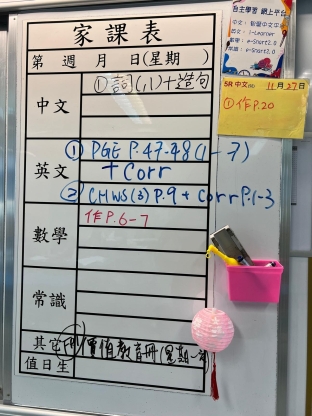 家課表
第 週 月 日(星期 )
中文
①詞(八)+造句
英文
① PGE P.47-48(1-7)
+ Corr
② CHWS(3) P.9 + Corr P.1-3
數學
作P.6-7
常識
其它
價值教育冊(星期一
值日生
自主學習 網上平台
i-Learner
e-Smart2.0
5R 中文
11月27日
①作P.20